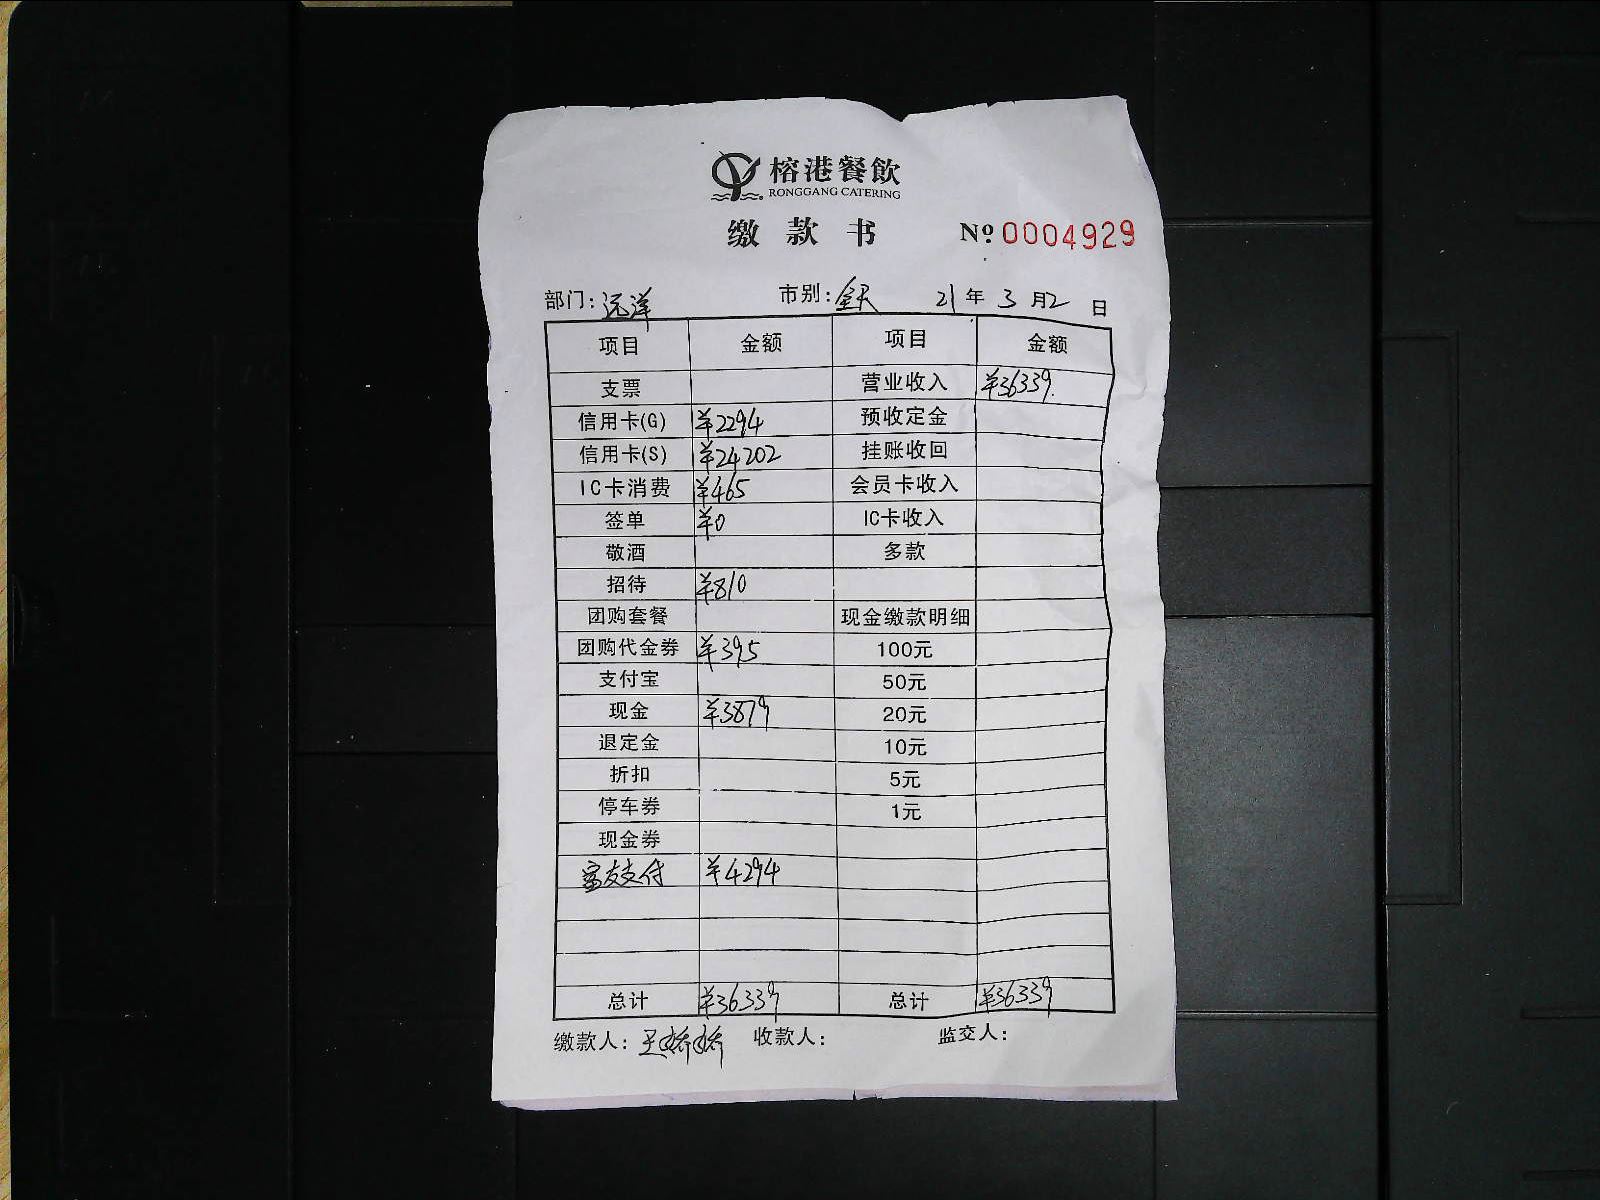 榕港餐飲
RONGGANG CATERING
缴款书 Nº 0004929
部门: 远洋 市别: 全天 21年3月2日
项目 金额 项目 金额
支票 营业收入 ¥36339.
信用卡(G) ¥2294 预收定金
信用卡(S) ¥24202 挂账收回
IC卡消费 ¥465 会员卡收入
签单 ¥0 IC卡收入
敬酒 多款
招待 ¥810
团购套餐 现金缴款明细
团购代金券 ¥395 100元
支付宝 50元
现金 ¥3879 20元
退定金 10元
折扣 5元
停车券 1元
现金券
富友支付 ¥4294
总计 ¥36339 总计 ¥36339
缴款人: 王娇娇 收款人: 监交人: